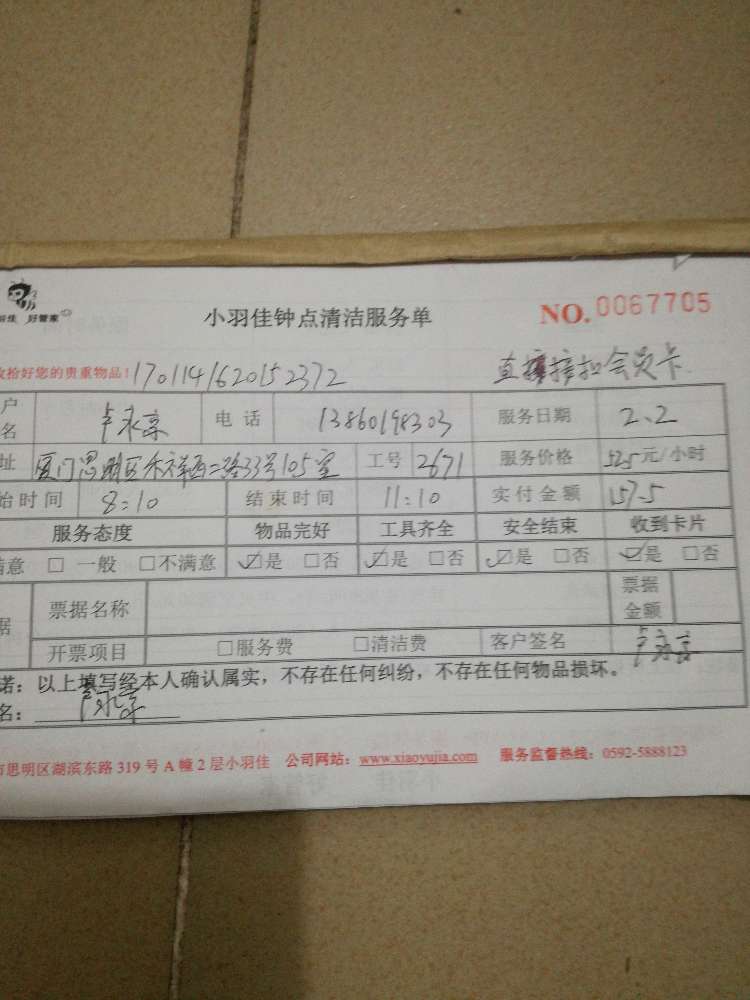 羽佳 好管家
小羽佳钟点清洁服务单 NO.0067705
收拾好您的贵重物品! 1701141620152372 直接扣会员卡
户名 卢永京 电话 13860198303 服务日期 2、2
址 厦门思明区禾祥西二路33号105室 工号 2671 服务价格 52.5元/小时
始时间 8:10 结束时间 11:10 实付金额 157.5
服务态度 物品完好 工具齐全 安全结束 收到卡片
满意 □ 一般 □不满意 ☑是 □否 ☑是 □否 ☑是 □否 ☑是 □否
据 票据名称 票据金额
开票项目 □服务费 □清洁费 客户签名 卢永京
诺:以上填写经本人确认属实,不存在任何纠纷,不存在任何物品损坏。
名: 卢永京
市思明区湖滨东路 319 号 A 幢 2 层小羽佳 公司网站:www.xiaoyujia.com 服务监督热线:0592-5888123